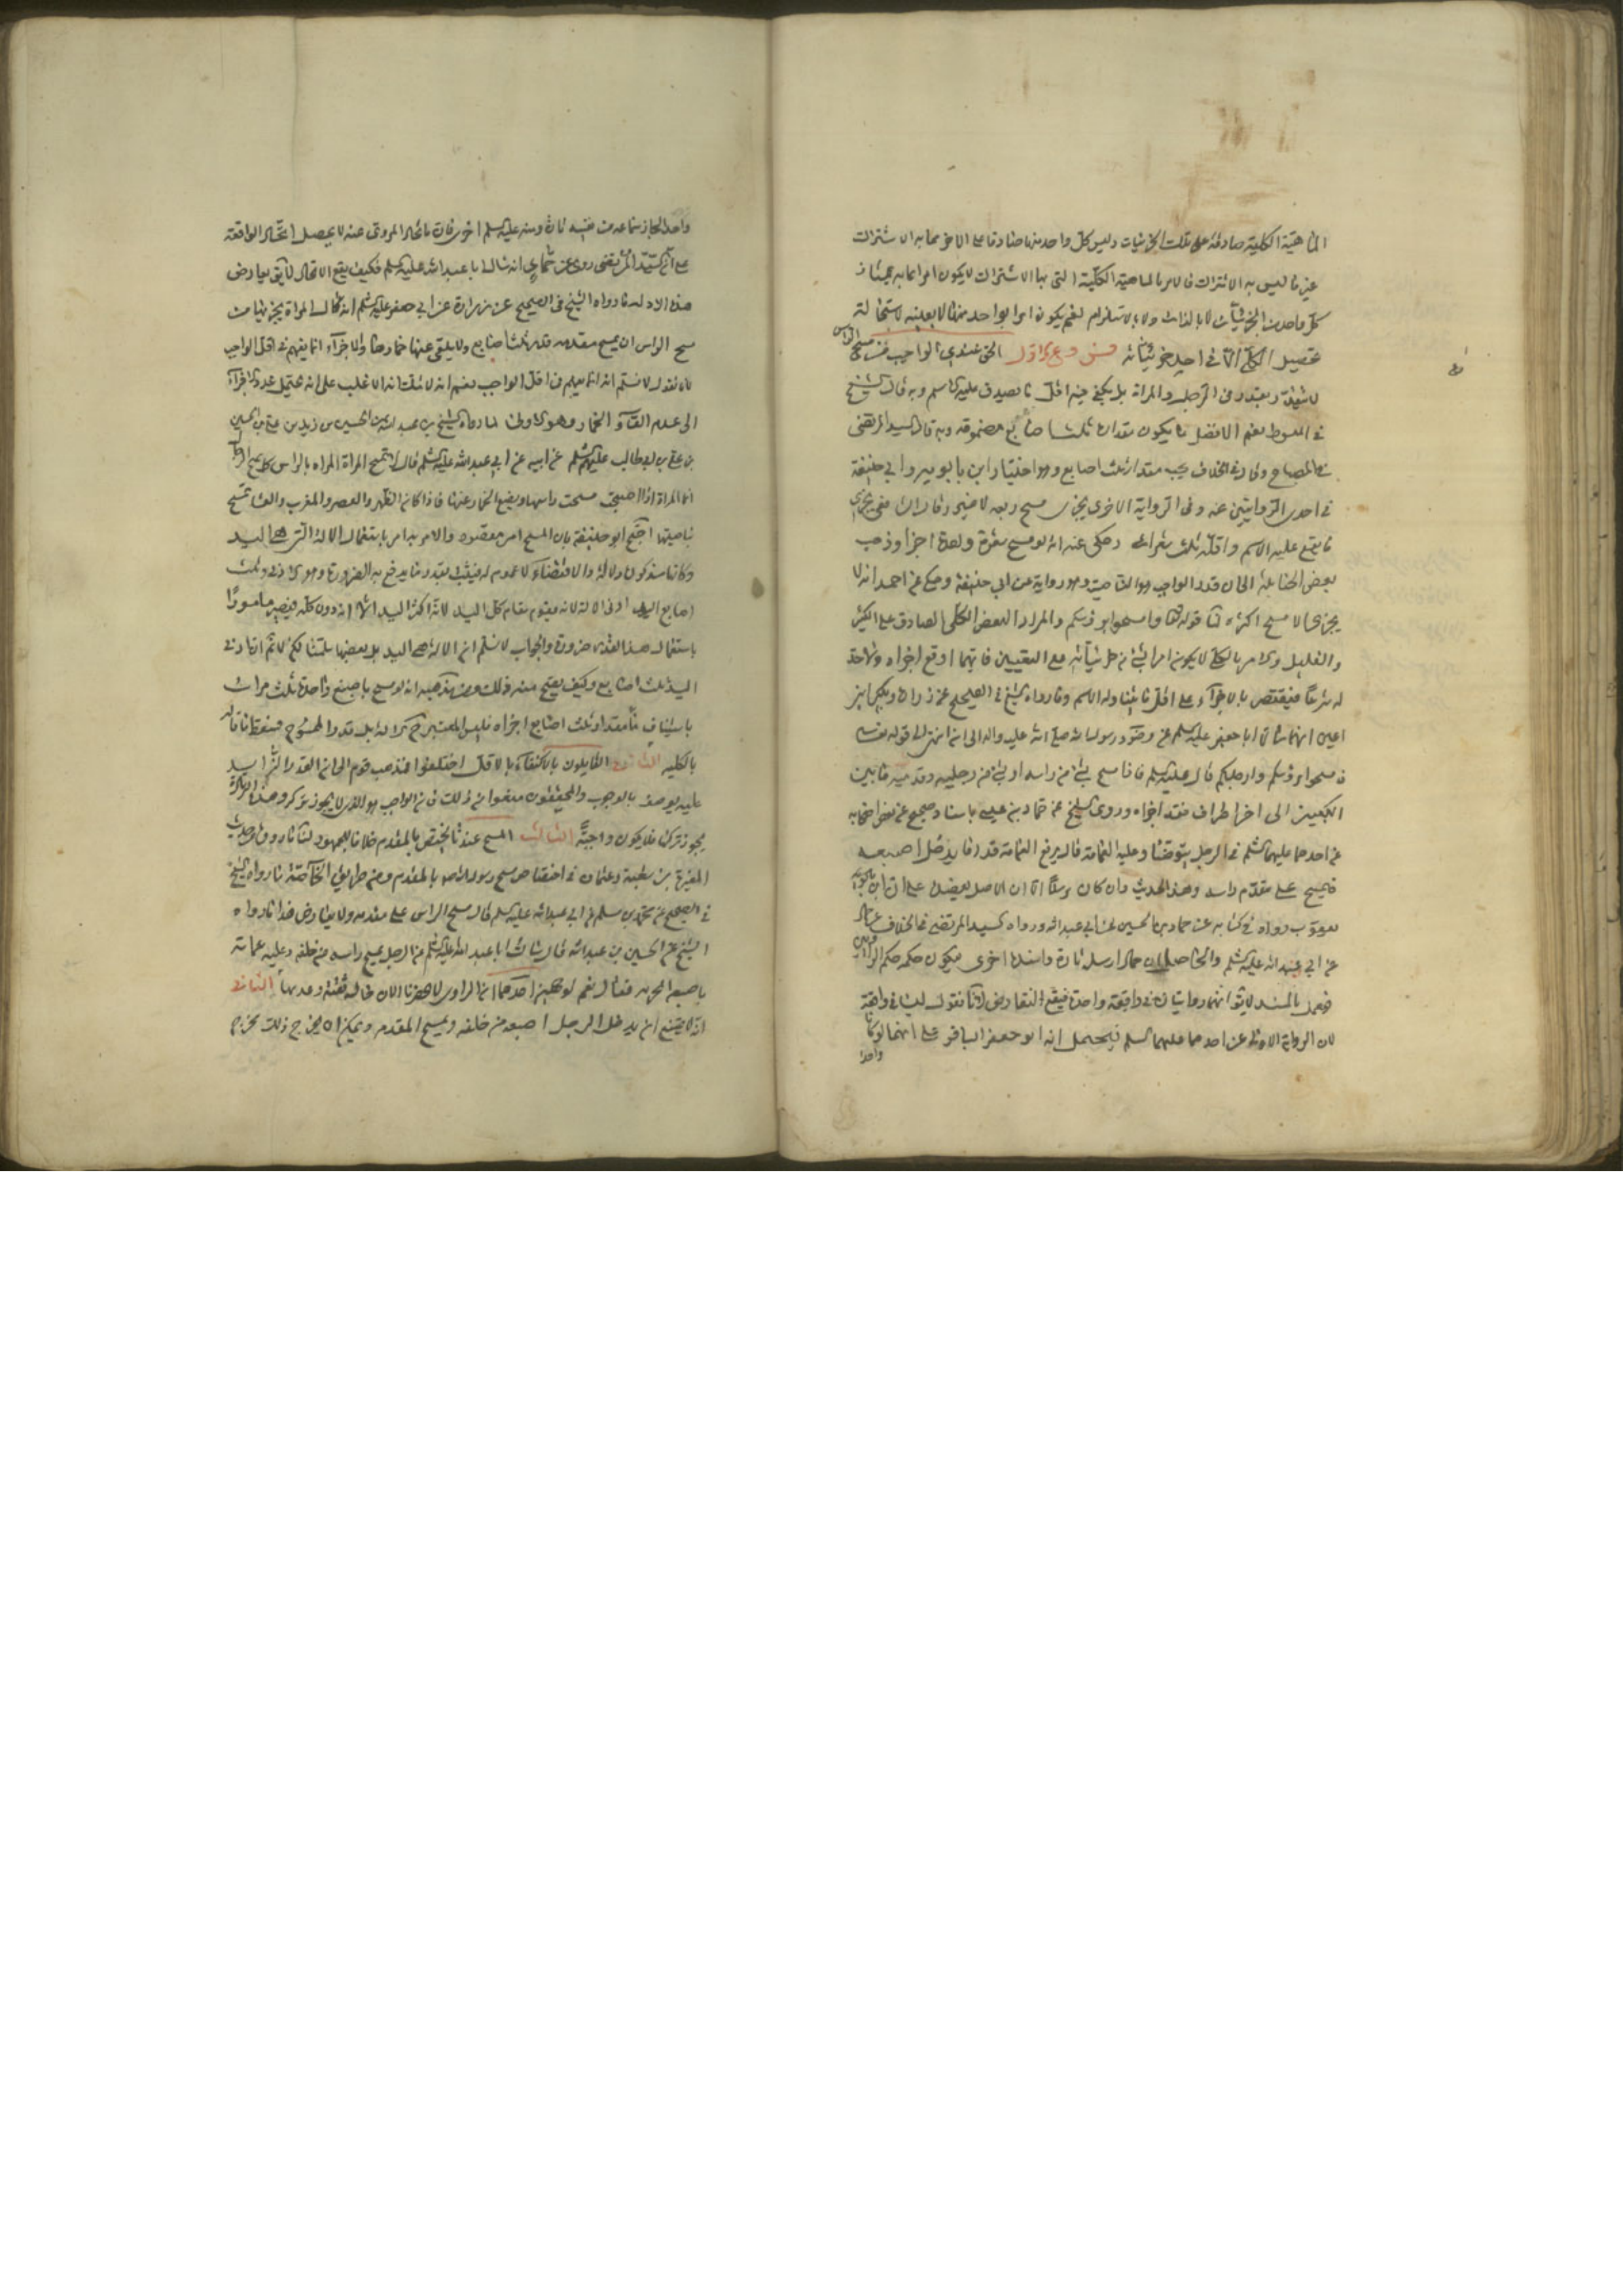 الماهية الكلية صادقة على تلك الجزئيات وليس كل واحد منها صادقا على الاخر مما به الاشتراك
غير ما ليس به الاشتراك فالامر بالماهية الكلية التي بها الاشتراك لا يكون امرا بما به يمتاز
كل واحد من الجزئيات لا بالذات ولا بالاستلزام نعم يكون امرا بواحد منها لا بعينه لاستحالة
تحصيل الكلي الا في احد جزئياته فروع الاول الحق عندي الواجب من مسح الراس
لا يتقدر بقدر في الرجل والمراة بل يكفي فيه اقل ما يصدق عليه الاسم وبه قال الشيخ
في المبسوط نعم الافضل ما يكون مقداره ثلث اصابع مضمومة وبه قال السيد المرتضى
في المصباح وقال في الخلاف يجب مقدار ثلث اصابع وهو اختيار ابن بابويه وابي حنيفة
في احدى الروايتين عنه وفي الرواية الاخرى يجزي مسح ربعه لا غير وقال الشافعي يجزي
ما يقع عليه الاسم واقله ثلث شعرات وحكى عنه انه لو مسح شعرة واحدة اجزأ وذهب
بعض الحنابلة الى ان قدر الواجب هو الناصية وهو رواية عن ابي حنيفة وحكي عن احمد انه لا
يجزي الا مسح اكثره لنا قوله تعالى وامسحوا برؤسكم والمراد البعض الكلي الصادق على الكثير
والقليل والامر بالكلي لا يكون امرا بشئ من جزئياته مع التعيين فايتهما اوقع اجزاه ولا حد
له شرعا فيقتصر بالاجزاء على اقل ما يتناوله الاسم وما رواه الشيخ في الصحيح عن زرارة وبكير ابني
اعين انهما سالا ابا جعفر عليه السلم عن وضوء رسول الله صلى الله عليه واله الى ان انتهى الى قوله تعالى
فامسحوا برؤسكم وارجلكم قال عليه السلم فاذا مسح بشئ من راسه او بشئ من رجليه وقدميه ما بين
الكعبين الى اخر اطراف فقد اجزاه وروى الشيخ عن حماد بن عيسى باسناد صحيح عن بعض اصحابه
عن احدهما عليهما السلم في الرجل يتوضا وعليه العمامة قال يرفع العمامة قدر ما يدخل اصبعه
فيمسح على مقدم راسه وهذا الحديث وان كان مرسلا الا ان الاصل يعضده على ان ابن بابويه
يعقوب رواه في كتابه عن حماد بن الحسين عن ابي عبد الله ورواه السيد المرتضى في الخلاف عن حماد
عن ابي عبد الله عليه السلم والحاصل ان حمادا ارسله تارة واسنده اخرى فيكون حكمه حكم الراويين
فعمل بالمسند لا يق انهما روايتان في واقعة واحدة فيقع التعارض لانا نقول ليسا في واقعة
لان الرواية الاولى عن احدهما عليهما السلم فيحتمل انه ابو جعفر الباقر على انهما لو كانا
واحدا
واحدا لجاز سماعه من تارة ومنه عليه السلم اخرى فان اتحاد المروي عنه لا يحصل اتحاد الواقعة
على ان السيد المرتضى روى عن حماد انه سال ابا عبد الله عليه السلم فكيف يقع الاتحاد لا يق يعارض
هذه الادلة ما رواه الشيخ في الصحيح عن زرارة عن ابي جعفر عليه السلم انه قال المراة يجزيها من
مسح الراس ان يمسح مقدمه قدر ثلث اصابع ولا يلقى عنها خمارها والاجزاء انما يفهم في اقل الواجب
لانا نقول لا نسلم انه انما يفهم في اقل الواجب نعم انه لا شك انه الاغلب على انه يحتمل عود الاجزاء
الى عدم القاء الخمار وهو الاولى لما رواه الشيخ عن عبد الله بن الحسين بن زيد بن علي بن الحسين
بن علي بن ابي طالب عليهم السلم عن ابيه عن ابي عبد الله عليه السلم قال لا تمسح المراة بالراس كما يمسح الرجال
انما المراة اذا اصبحت مسحت راسها وتضع الخمار عنها فاذا كان الظهر والعصر والمغرب والعشا تمسح
بناصيتها احتج ابو حنيفة بان المسح امر مقصود والامر به امر باستعمال الالة التي هي اليد
وكانها مذكورة دلالة والاقتضاء لا عموم له فيثبت بقدر ما يدفع به الضرورة وهو الادنى وثلث
اصابع اليد ادنى الالة لانه يقوم مقام كل اليد لانه اكثر اليد الا انه دون كله فيصير مامورا
باستعمال هذا القدر ضرورة والجواب لا نسلم ان الالة هي اليد بل بعضها سلمنا لكن لا ثم انه ادنى
اليد ثلث اصابع وكيف يصح منه ذلك ومن مذهبه انه لو مسح باصبع واحدة ثلث مرات
باستيناف ماء مقدار ثلث اصابع اجزاه فليس المعتبر ح الالة بل قدر الممسوح فسقط ما قاله
بالكلية الثاني القايلون بالاكتفاء بالاقل اختلفوا فذهب قوم الى ان القدر الزايد
عليه يوصف بالوجوب والمحققون منعوا من ذلك فان الواجب هو الذي لا يجوز تركه وهذه الزيادة
يجوز تركها فلا يكون واجبة الثالث المسح عندنا يختص بالمقدم خلافا للجمهور لنا ما روي في حديث
المغيرة بن شعبة وعثمان في اختصاص مسح رسول الله ص بالمقدم ومن طريق الخاصة ما رواه الشيخ
في الصحيح عن محمد بن مسلم عن ابي عبد الله عليه السلم قال مسح الراس على مقدمه ولا يعارض هذا ما رواه
الشيخ عن الحسين بن عبد الله قال سالت ابا عبد الله عليه السلم عن الرجل يمسح راسه من خلفه وعليه عمامة
باصبعه ايجزيه فقال نعم لوجهين احدهما ان الراوي لا يحضرنا الان حاله ثقة وعدمها الثاني
انه لا يمتنع ان يدخل الرجل اصبعه من خلفه ويمسح المقدم ويمكن ان يخرج ذلك مخرج